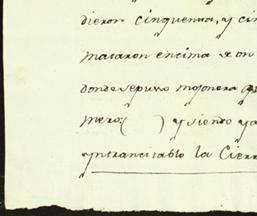 dieron cinquenta, y cin
mataron encima de on
donde se puso mojonera
meros ( ) y siendo ya
yntrancitable la Cierr